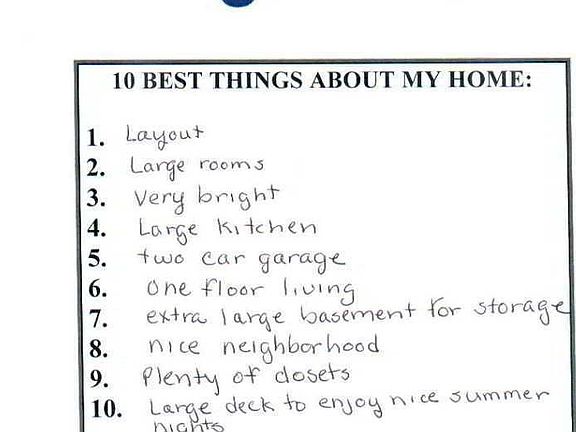 10 BEST THINGS ABOUT MY HOME:
1. Layout
2. Large rooms
3. Very bright
4. Large kitchen
5. two car garage
6. one floor living
7. extra large basement for storage
8. nice neighborhood
9. Plenty of closets
10. Large deck to enjoy nice summer
nights